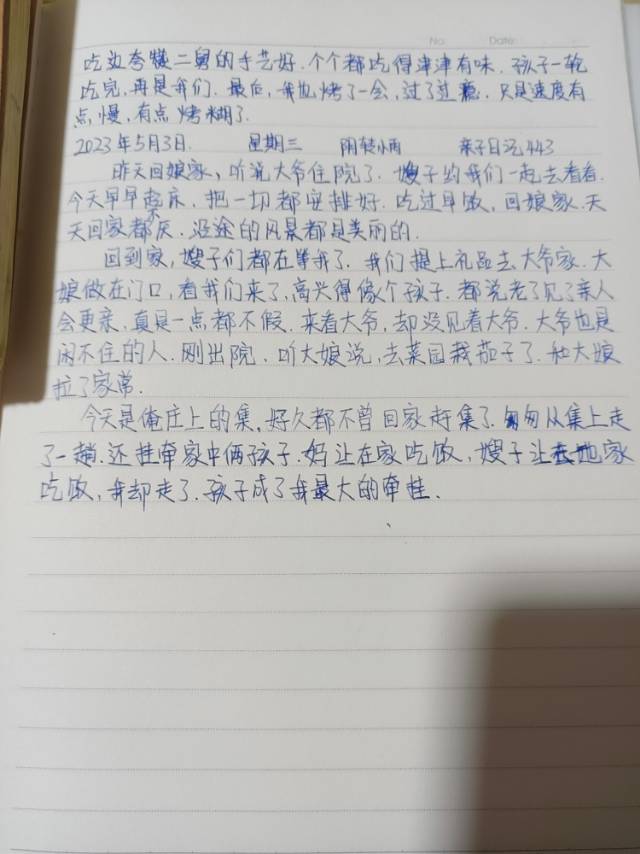 No. Date.
吃边夸赞二舅的手艺好.个个都吃得津津有味.孩子一轮
吃完,再是我们.最后,我也烤了一会,过了过瘾.只是速度有
点慢,有点烤糊了.
2023年5月3日. 星期三 阴转小雨 亲子日记443
昨天回娘家,听说大爷住院了.嫂子约我们一起去看看.
今天早早起床.把一切都安排好.吃过早饭,回娘家.天
天回家都灰.沿途的风景都是美丽的.
回到家,嫂子们都在等我了.我们提上礼品去大爷家.大
娘做在门口,看我们来了,高兴得像个孩子.都说老了见了亲人
会更亲.真是一点都不假.来看大爷,却没见着大爷.大爷也是
闲不住的人.刚出院.听大娘说,去菜园栽茄子了.和大娘
拉了家常.
今天是俺庄上的集,好久都不曾回家赶集了.匆匆从集上走
了一趟.还挂牵家中俩孩子.妈让在家吃饭,嫂子让去她家
吃饭,我却走了.孩子成了我最大的牵挂.